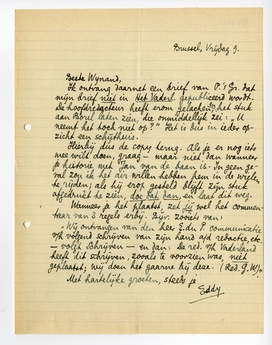 Brussel, Vrijdag 9.
Beste Wynand,
Ik ontvang daarnet een brief van P.'s Gr. dat
mijn brief niet in Het Vaderl. gepubliceerd wordt.
De hoofdredacteur heeft erom gelachen, het stuk
aan Borel laten zien, die onmiddellijk zei: "U
neemt het toch niet op?" Het is dus in ieder op-
zicht een
Hierbij dus de copy terug. Als je er nog iets
mee wilt doen, graag - maar niet dan wanneer
je historie met Van van de baan is. In geen ge-
val zou ik het air willen hebben hem in de wielen
te rijden; als hij erop gesteld blijft zijn stuk
afgedrukt te zien, doe dat dan, en laat dit weg.
Wanneer je het plaatst, zet jij wel het commen-
taar van 3 regels erbij. Bijv. zoiets van:
"Wij ontvangen van den heer E. du P. communicatie
v/h volgend schrijven van zijn hand a/d redactie, etc.
- volgt schrijven - en dan: De red. v/h Vaderland
heeft dit schrijven, zooals te voorzien was, niet
geplaatst; wij doen het gaarne bij deze. (Red. G.W.)"
Met hartelijke groeten, steeds je
Eddy